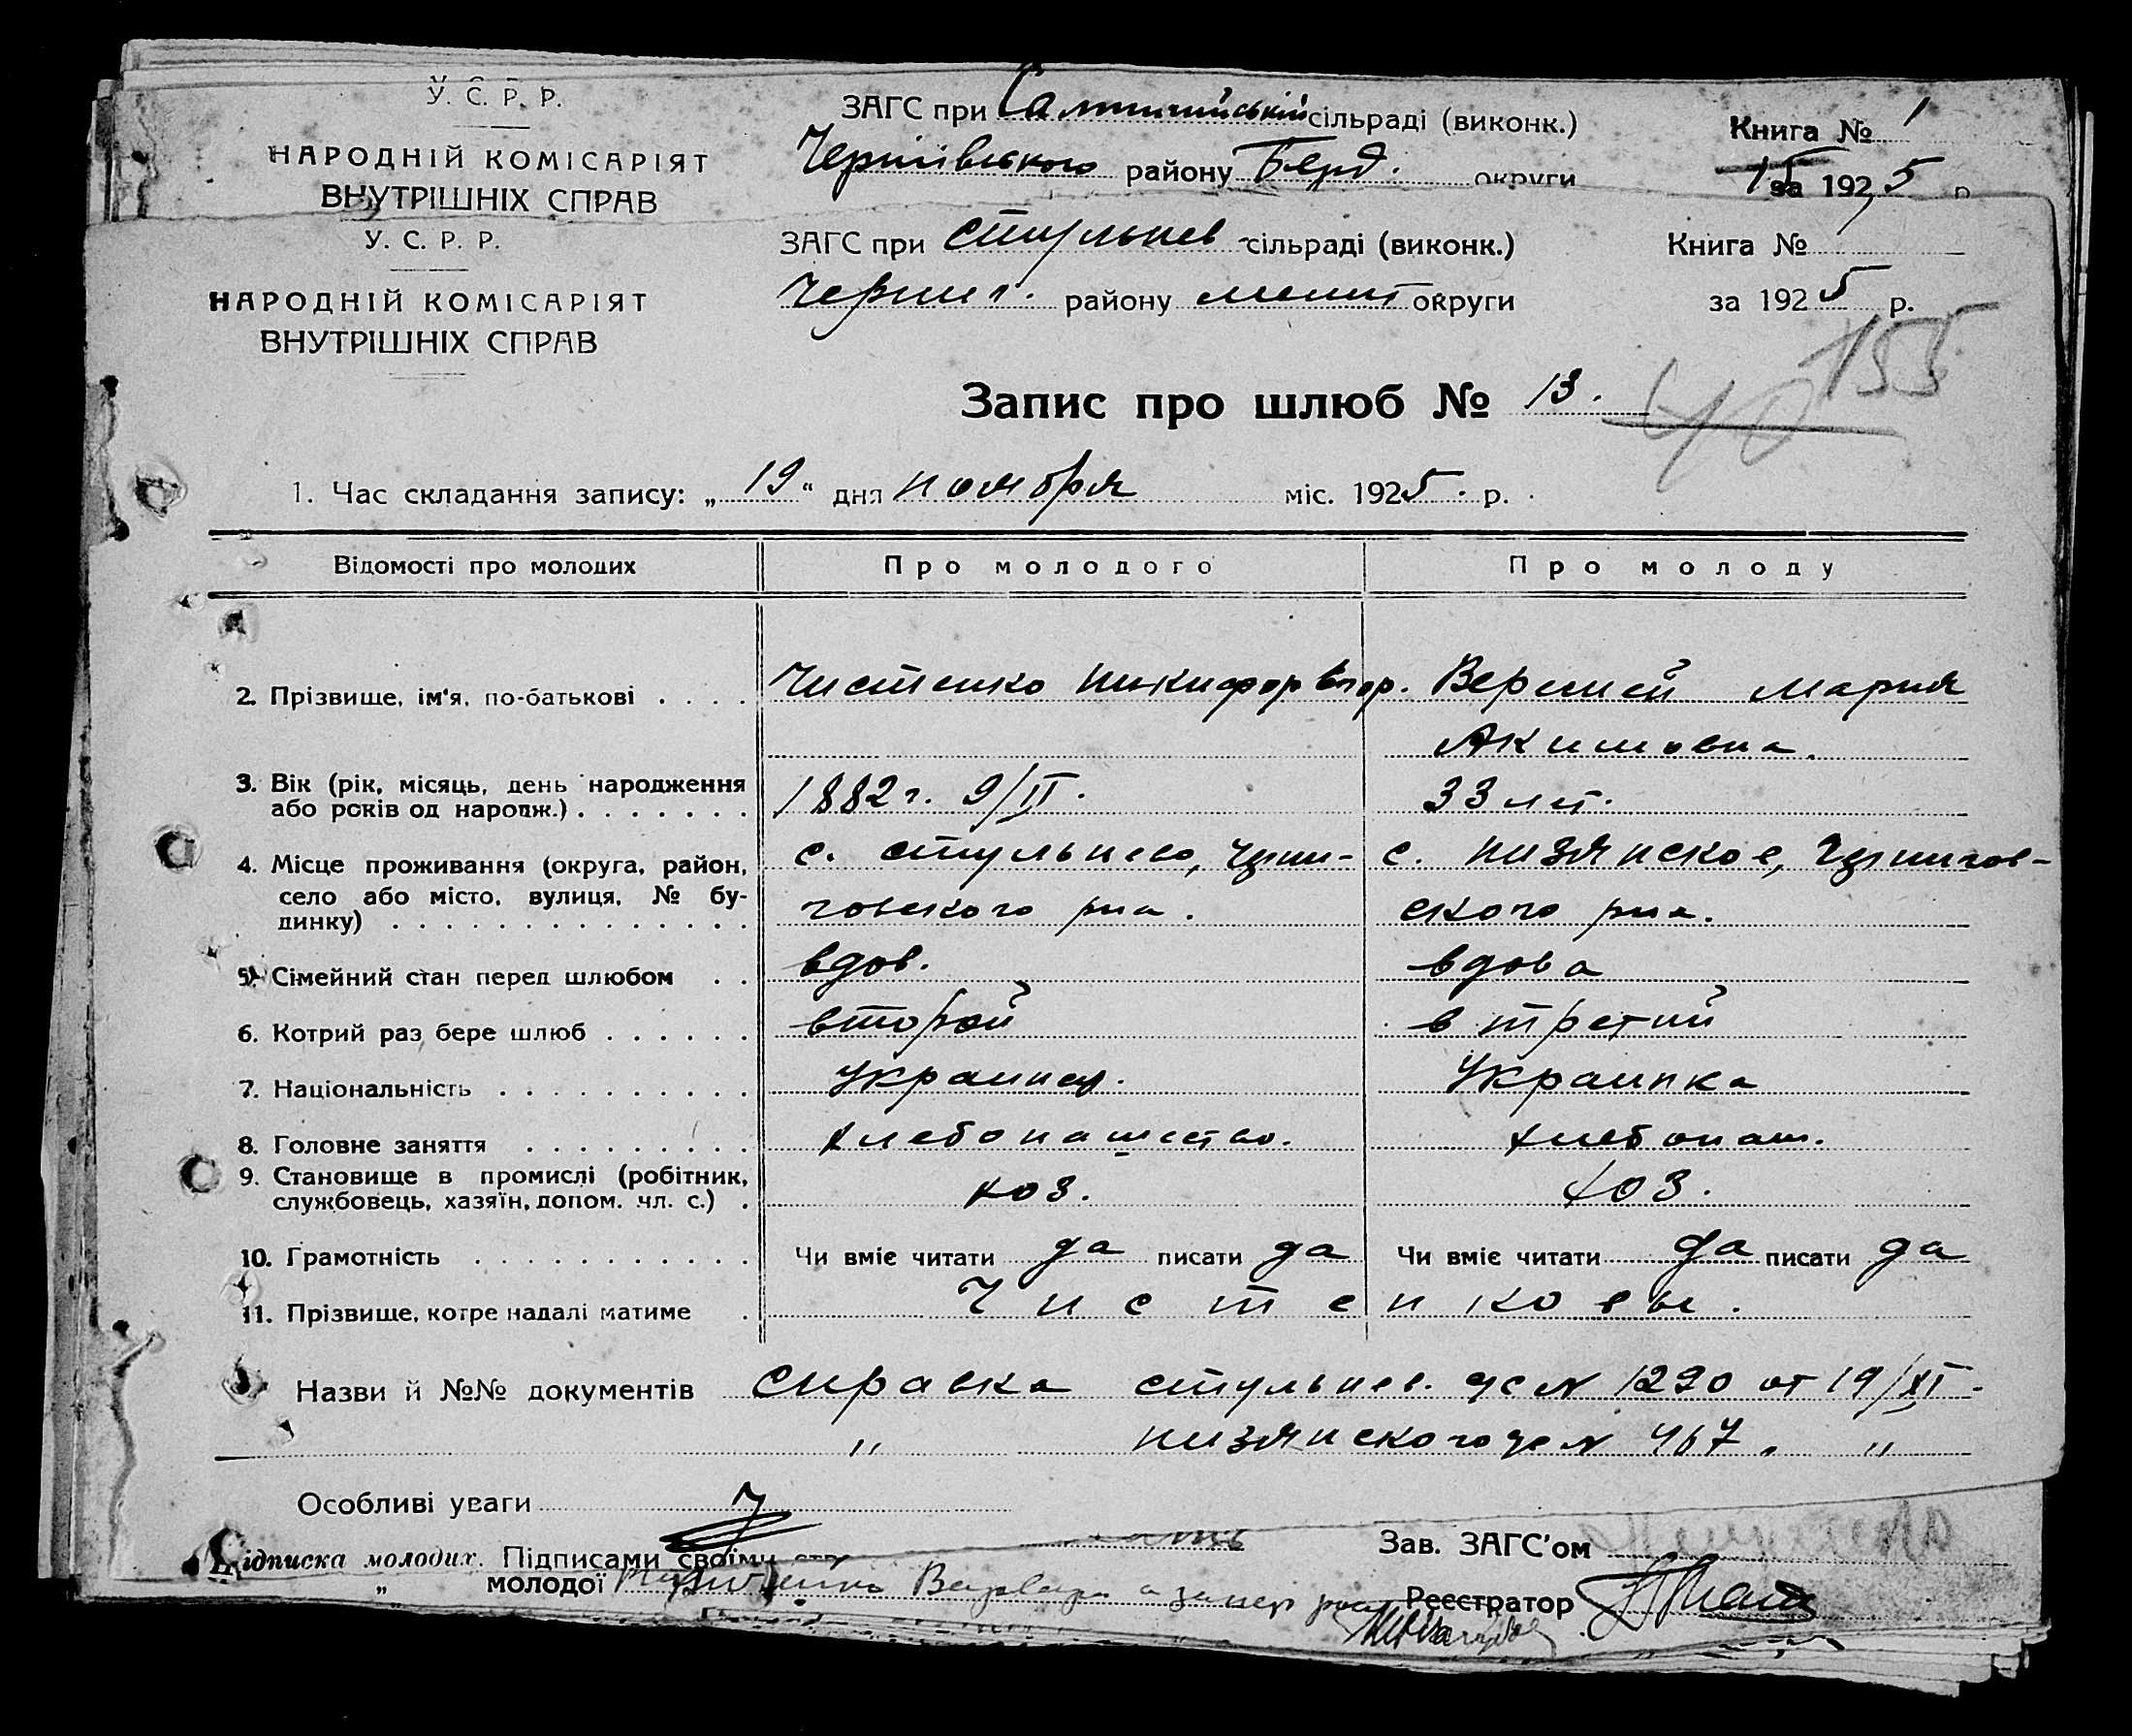 У. С. Р. Р.
НАРОДНІЙ КОМІСАРІЯТ
ВНУТРІШНІХ СПРАВ
ЗАГС при сільраді (виконк.)
Чернівського району Берд. округи
Книга № 1
за 1925 р
У. С. Р. Р.
НАРОДНІЙ КОМІСАРІЯТ
ВНУТРІШНІХ СПРАВ
ЗАГС при Стульнев сільраді (виконк.)
Черниг. району мелит округи
Книга №
за 1925 р.
155
40
Запис про шлюб № 13.
1. Час складання запису: „19“ дня ноября міс. 1925. р.
Відомості про молодих Про молодого Про молоду
2. Прізвище, ім'я, по-батькові Чистенко Никифор Верещей Мария
Акимовна.
3. Вік (рік, місяць, день народження
або років од народж.) 1882 г. 9/II. 33 лет.
4. Місце проживання (округа, район, с. Стульнево, Черни- с. Низянское, Чернигов-
село або місто, вулиця, № бу- говского риа. ского риа.
динку)
5. Сімейний стан перед шлюбом вдов. вдова
6. Котрий раз бере шлюб второй в третий
7. Національність Украинец. Украинка
8. Головне заняття хлебопашество. хлебопаш.
9. Становище в промислі (робітник,
службовець, хазяїн, допом. чл. с.) хоз. хоз.
10. Грамотність Чи вміє читати да писати да Чи вміє читати да писати да
11. Прізвище, котре надалі матиме Чистенковы.
Назви й №№ документів справка стульнев. с № 1220 от 19/XI.
" низянского с № 467 "
Особливі уваги
Підписка молодих. Підписами своїми
Зав. ЗАГС'ом
„ молодої Варвара а
Реєстратор